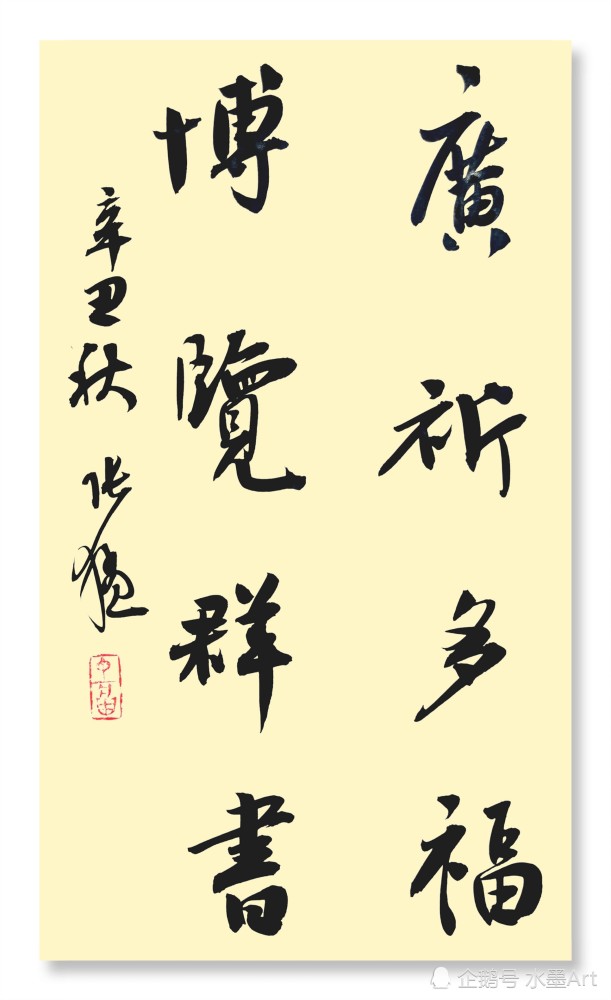 廣祈多福
博覽群書
辛丑秋 张猛
企鹅号 水墨Art